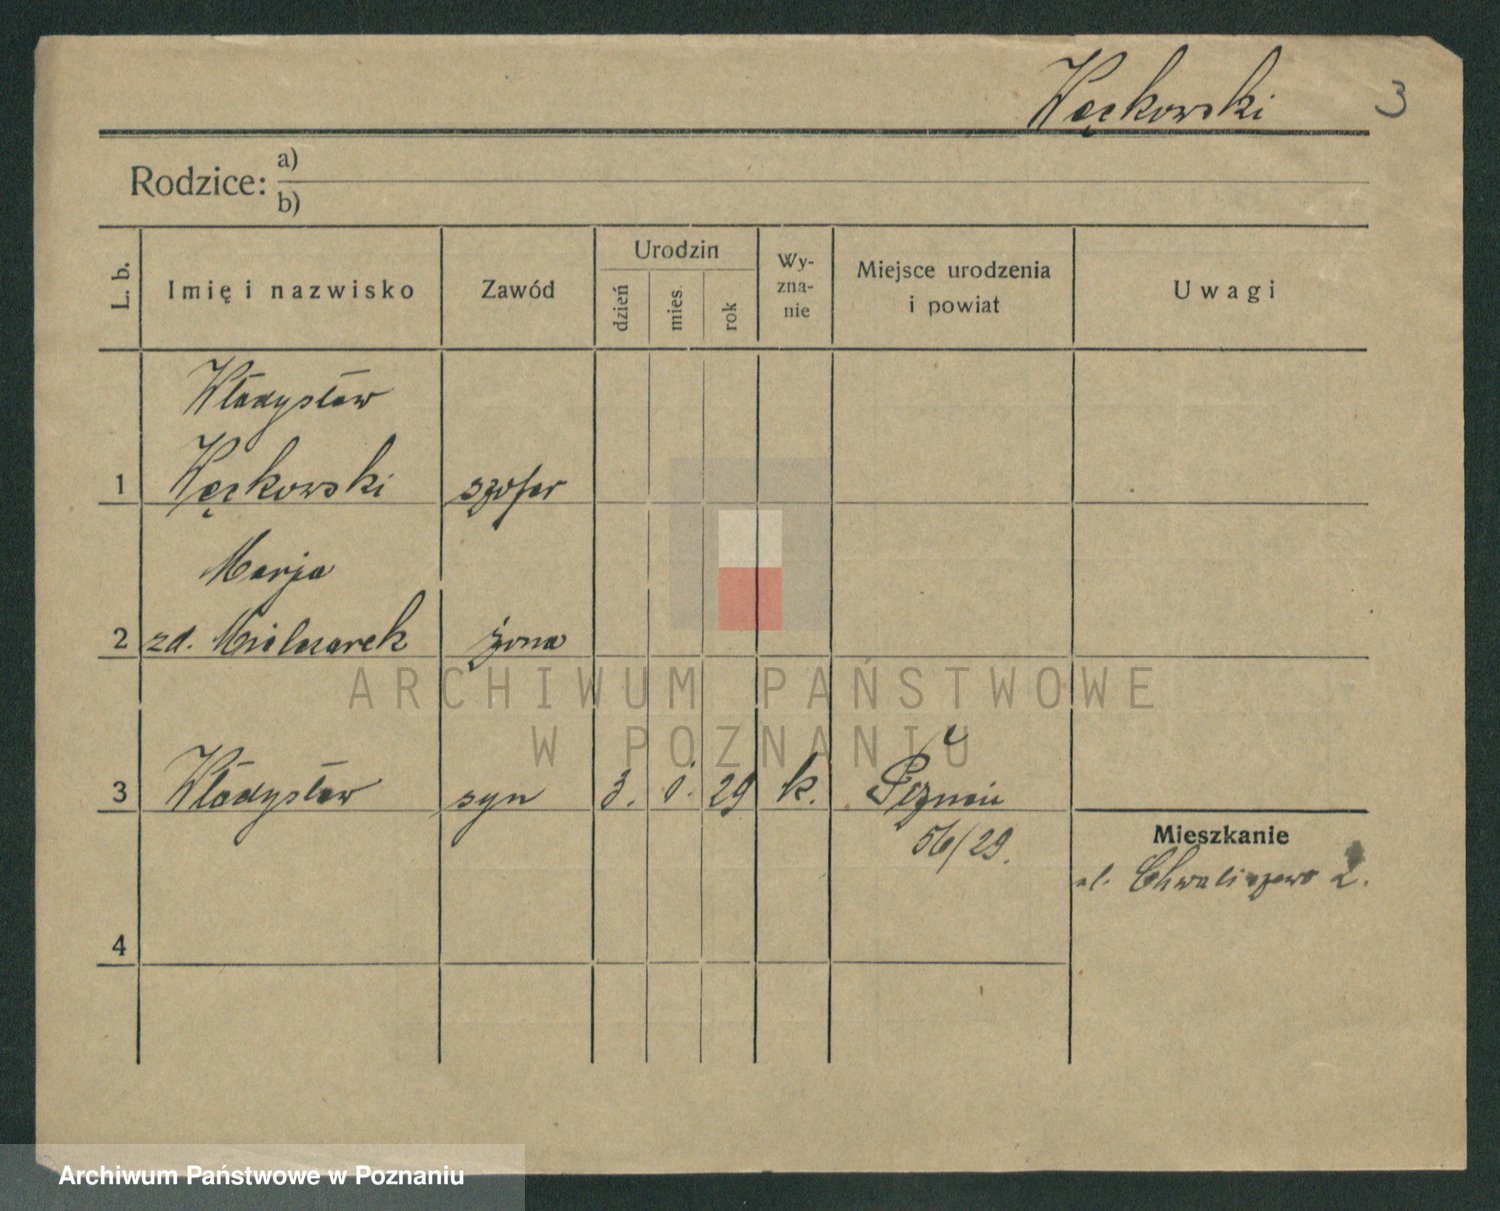 Węckowski 3
Rodzice: a)
b)
L. b. Imię i nazwisko Zawód Urodzin dzień mies. rok Wy-zna-nie Miejsce urodzenia i powiat Uwagi
Władysław
1 Węckowski szofer
Marja
2 zd. żona
3 Władysław syn 3. i. 29 k. Poznań
56/29.
Mieszkanie
ul. Chwaliszewo 2.
4
ARCHIWUM PAŃSTWOWE
W POZNANIU
Archiwum Państwowe w Poznaniu